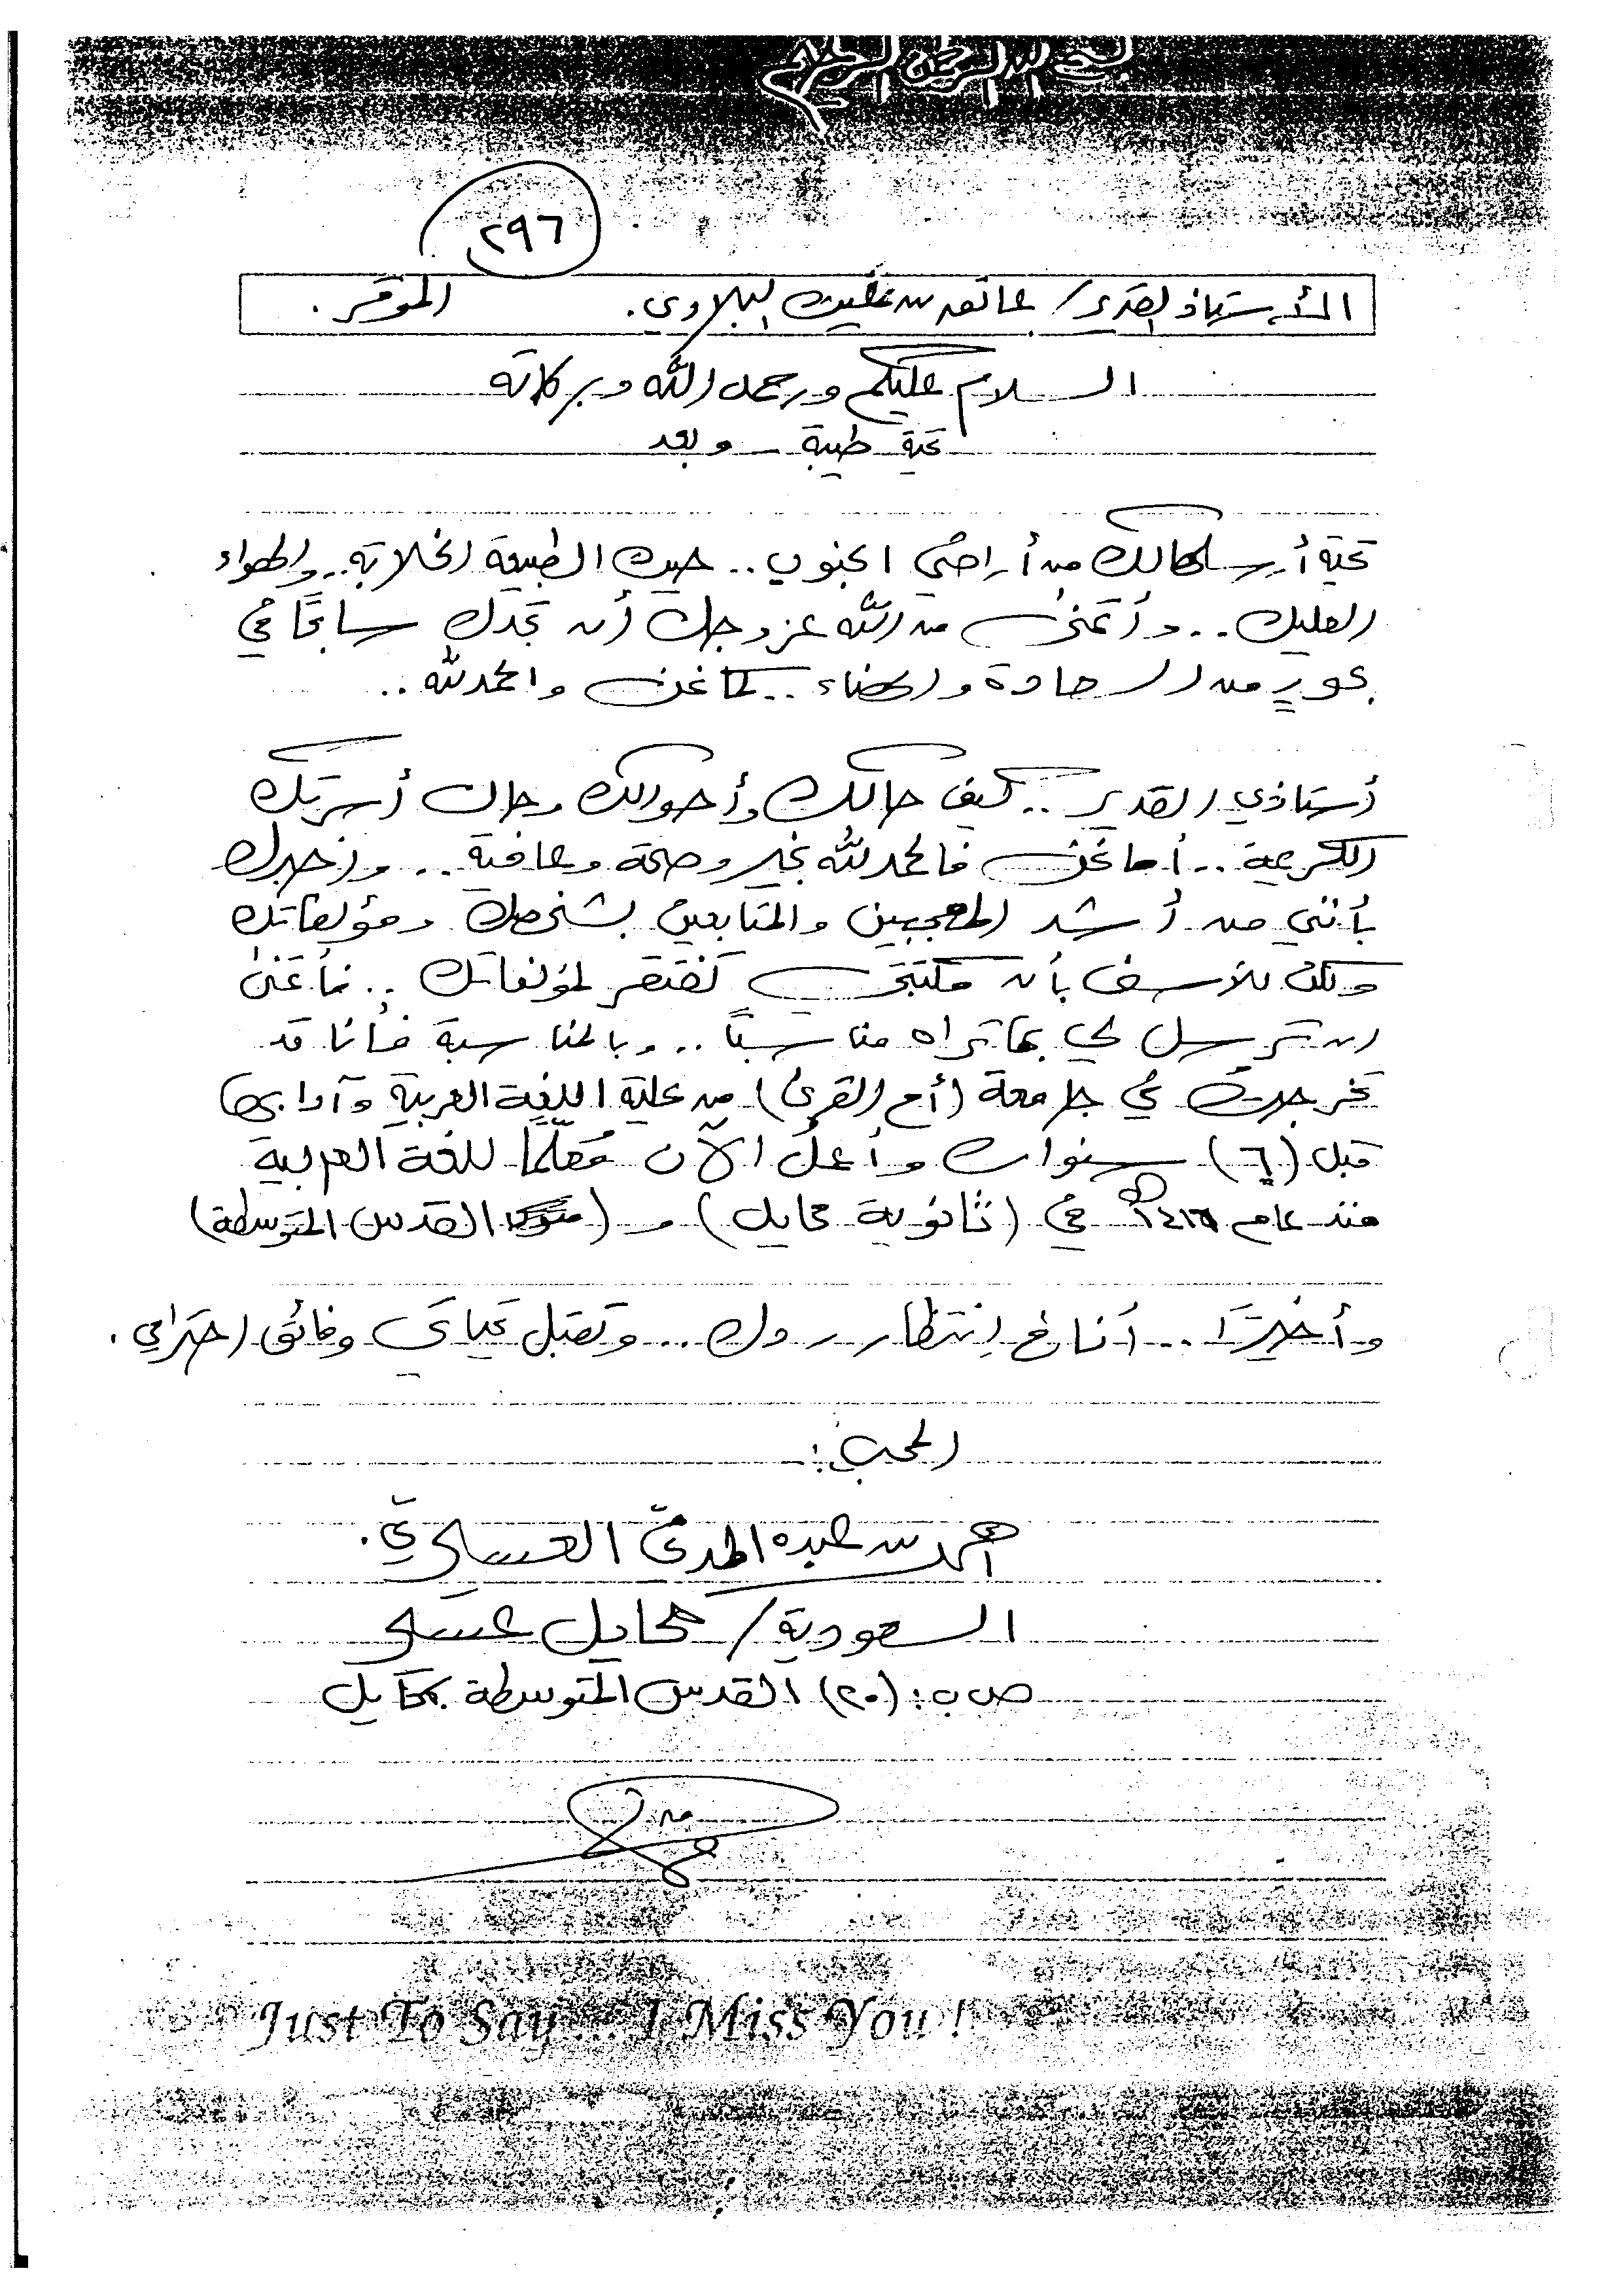 بسم الله الرحمن الرحيم
٢٩٦
الأستاذ القدير / عاتق بن غيث البلادي. الموقر.
السلام عليكم ورحمة الله وبركاته
تحية طيبة - وبعد
تحية أرسلها لك من أراضي الجنوب .. حيث الطبيعة الخلابة .. والهواء
العليل .. وأتمنى من الله عز وجل أن تجدك سابحًا في
بحورٍ من السعادة والهناء .. كما نحن والحمد لله ..
أستاذي القدير .. كيف حالك وأحوالك وحال أسرتك
الكريمة .. أما نحن فالحمد لله بخير وصحة وعافية .. وأخبرك
بأنني من أشد المعجبين والمتابعين بشخصك ومؤلفاتك
ولكن للأسف بأن مكتبتي تفتقر لمؤلفاتك .. فأتمنى
أن ترسل لي بما تراه مناسبًا .. وبالمناسبة فأنا قد
تخرجت في جامعة (أم القرى) من كلية اللغة العربية وآدابها
قبل (٦) سنوات وأعمل الآن مُعلمًا للغة العربية
منذ عام هـ في (ثانوية محايل) و (القدس المتوسطة)
وأخيرًا .. أنا في إنتظار ردك ... وتقبل تحياتي وفائق احترامي.
المحب:
أحمد بن عبده المدني العسيري.
السعودية / محايل عسير
ص ب: (٢٠) القدس المتوسطة بمحايل
Just To Say ... I Miss You !